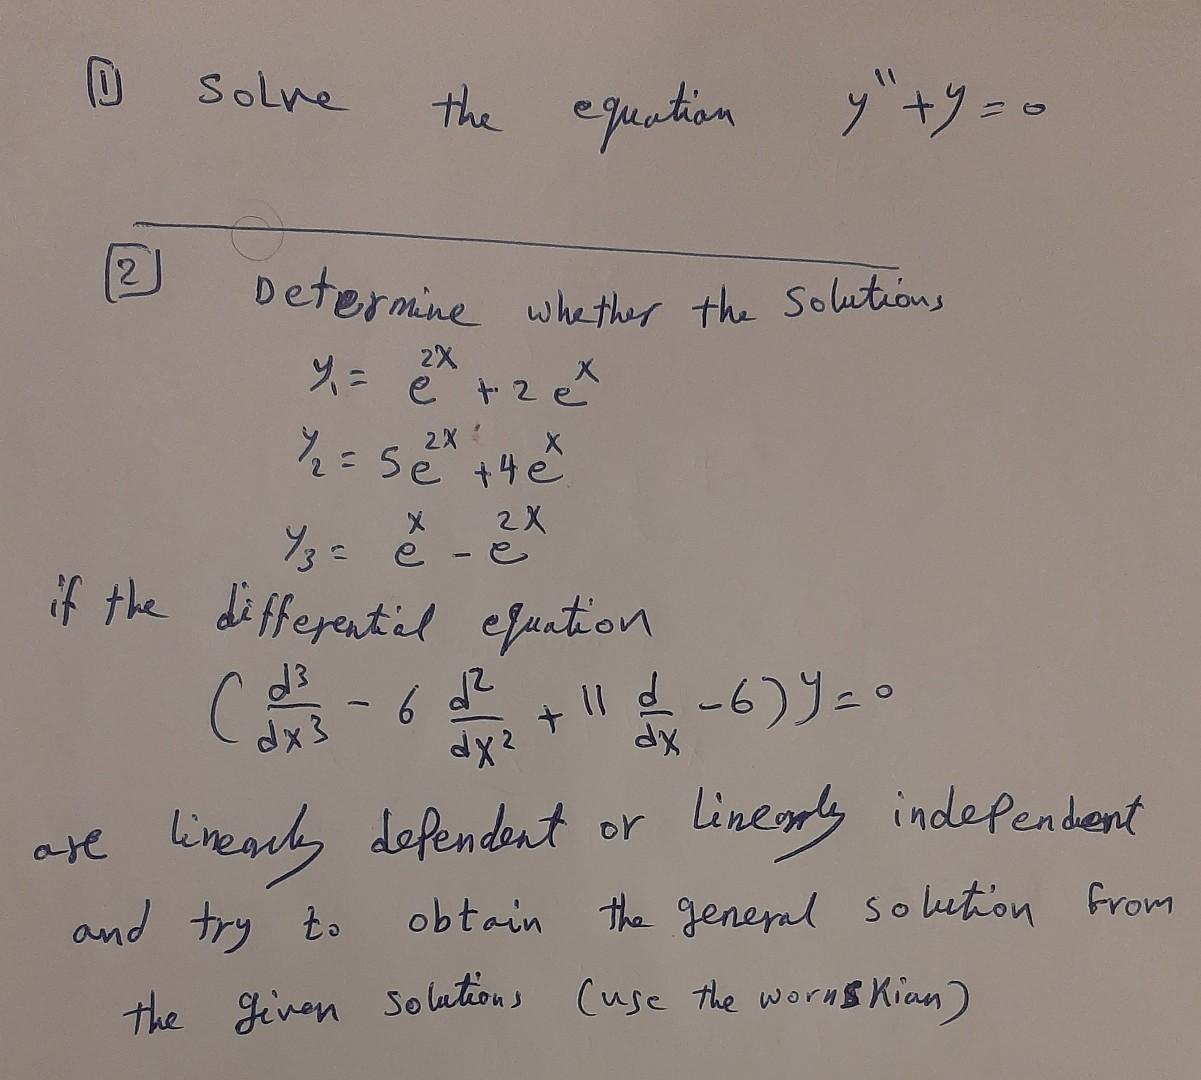 1 Solve the equation y" + y = 0
2 Determine whether the Solutions
y₁ = e^{2x} + 2 e^{x}
y₂ = 5e^{2x} + 4e^{x}
y₃ = e^{x} - e^{2x}
if the differential equation
( d³/dx³ - 6 d²/dx² + 11 d/dx - 6) y = 0
are linearly dependent or Linearly independent
and try to obtain the general solution from
the given solutions (use the wornskian)